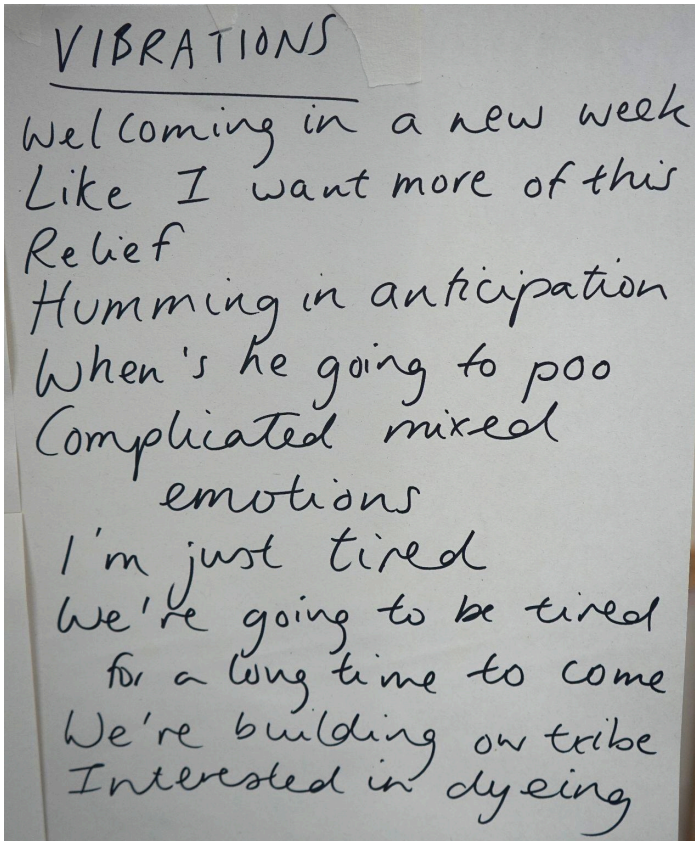 VIBRATIONS
Welcoming in a new week
Like I want more of this
Relief
Humming in anticipation
When's he going to poo
Complicated mixed
emotions
I'm just tired
We're going to be tired
for a long time to come
We're building our tribe
Interested in dyeing